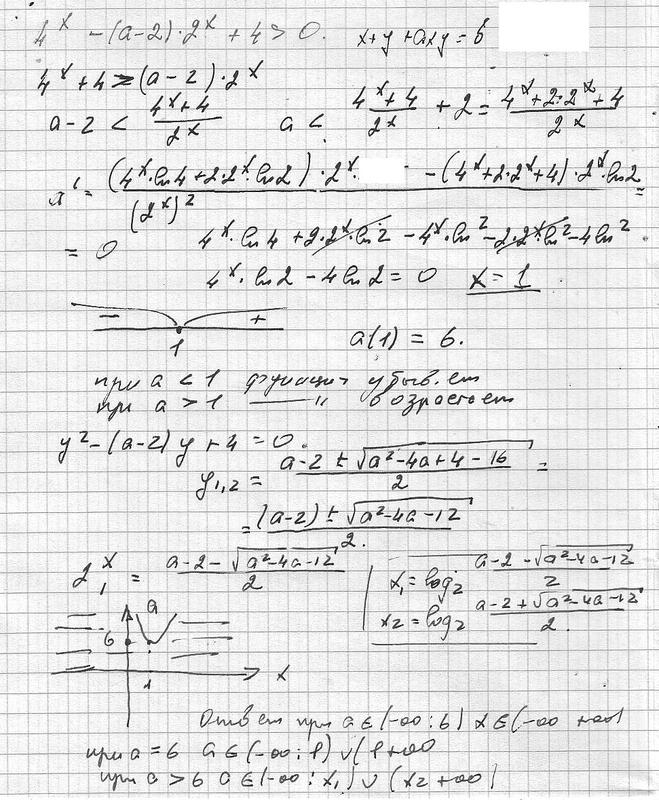 4^x - (a-2)·2^x + 4 > 0. x+y+axy=6
4^x + 4 > (a-2)·2^x
a-2 < (4^x+4)/2^x a < (4^x+4)/2^x + 2 = (4^x+2·2^x+4)/2^x
x' = ((4^x·ln4+2·2^x·ln2)·2^x· -(4^x+2·2^x+4)·2^x ln2)/(2^x)^2 =
= 0 4^x·ln4 + 2·2^x·ln2 - 4^x·ln2 - 2·2^x ln2 - 4ln2
4^x·ln2 - 4ln2 = 0 x = 1
- +
1 a(1) = 6.
при a < 1 функция убывает
при a > 1 —— " возрастает
y² - (a-2)y + 4 = 0.
y1,2 = (a-2 ± √(a²-4a+4-16))/2 =
= ((a-2) ± √(a²-4a-12))/2.
2^x_1 = (a-2-√(a²-4a-12))/2 x1 = log2 (a-2-√(a²-4a-12))/2
x2 = log2 (a-2+√(a²-4a-12))/2
a
6
1 x
Ответ при a∈(-∞:6) x∈(-∞ +∞)
при a = 6 a∈(-∞:1)∪(1+∞
при a > 6 a∈(-∞:x1)∪(x2+∞)